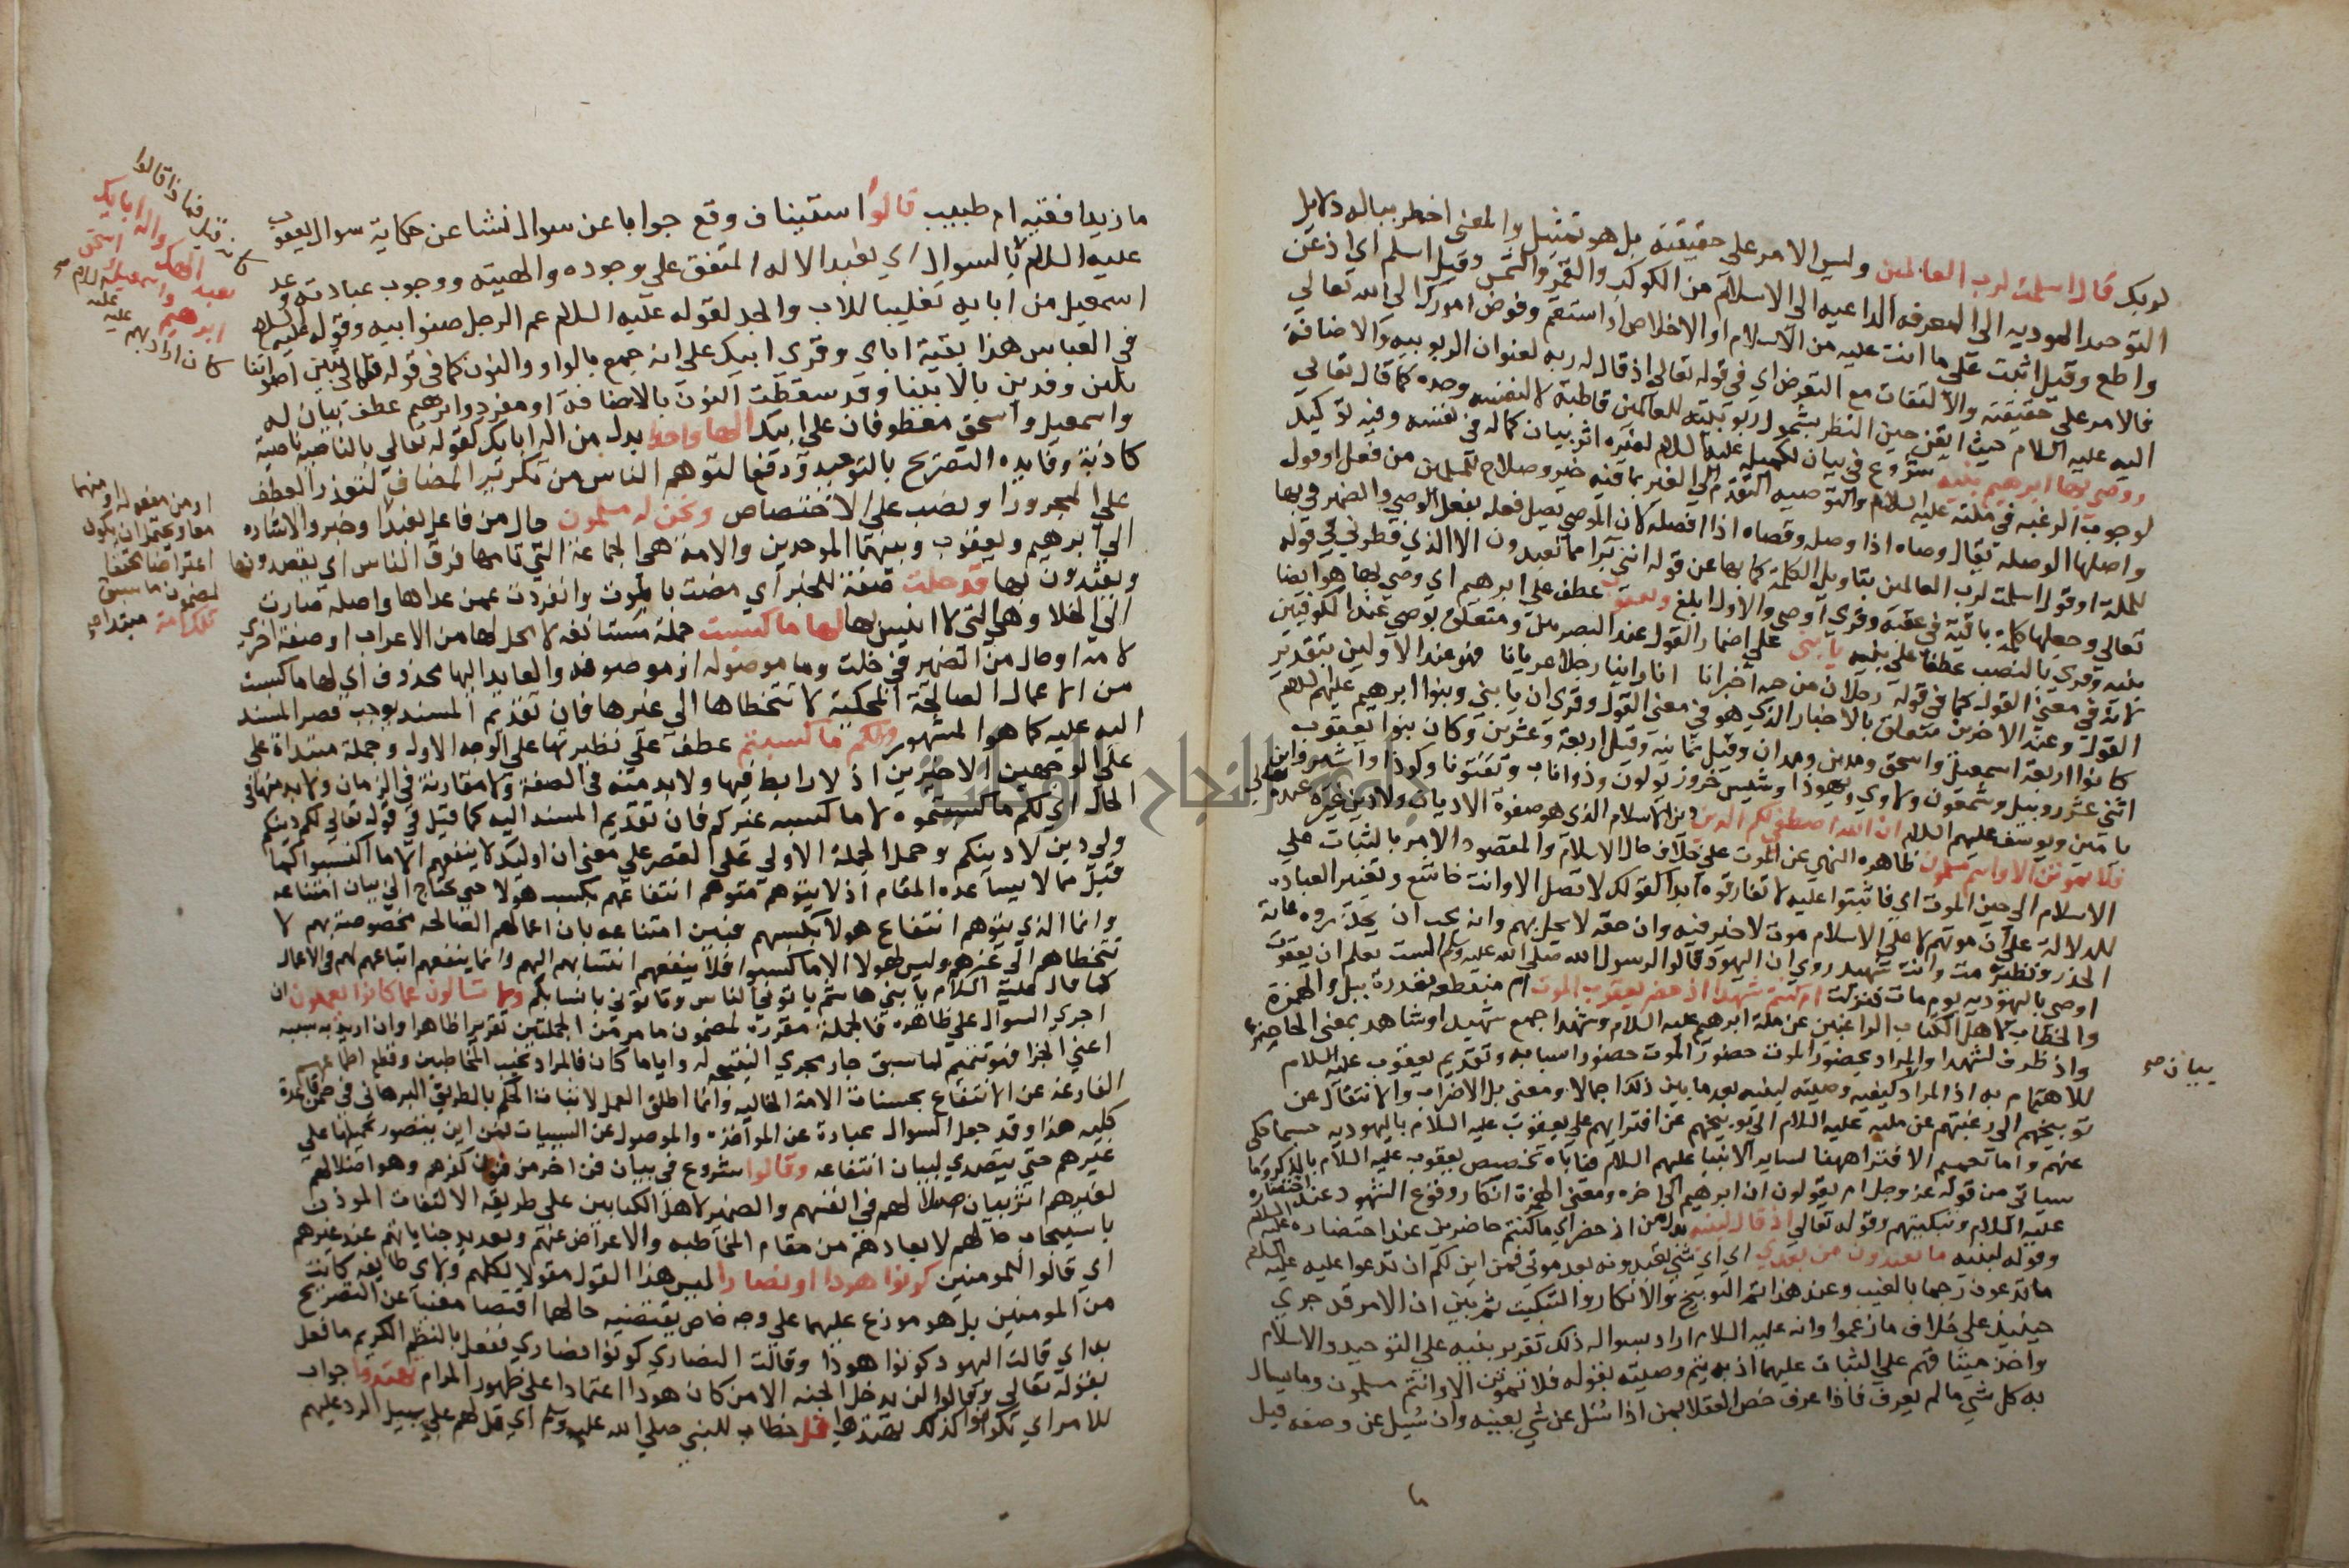 لربك قال اسلمت لرب العالمين وليس الامر على حقيقته بل هو تمثيل والمعنى اخطر بباله دلايل
التوحيد المودية الى المعرفه الداعيه الى الاسلام من الكوكب والقمر والشمس وقيل اسلم اي اذعن
واطع وقيل اثبت على ما انت عليه من الاسلام او الاخلاص او استقم وفوض امورك الى الله تعالى
فالامر على حقيقته والالتفات مع التعرض اي في قوله تعالى اذ قال له ربه لعنوان الربوبيه والاضافة
اليه عليه السلام حيث ايقن حين النظر بشمول ربوبيته للعالمين قاطبة لا لنفسه وحده كما قال تعالى
ووصى بها ابرهيم بنيه شروع في بيان تكميله عليه السلام لغيره اثر بيان كماله في نفسه وفيه توكيد
لوجوب الرغبه في ملته عليه السلام والتوصيه التقدم الى الغير بما فيه خير وصلاح للمسلمين من فعل او قول
واصلها الوصله يقال وصاه اذا وصله وفصاه اذا افصله كان الموصي يصل فعله بفعل الوصي والضمير في بها
للملة او قوله اسلمت لرب العالمين بتاويل الكلمة كما بها عن قوله انني برا مما تعبدون الا الذي فطرني في قوله
تعالى وجعلها كلمة باقية في عقبه وقرى اوصى والاول ابلغ ويعقوب عطف على ابرهيم اي وصى بها هو ايضا
بنيه وقرى بالنصب عطفا على بنيه يا بني على اضمار القول عند البصريين ومتعلق بوصى عند الكوفيين
لانه في معنى القول كما في قوله رجلان من ضبه اخبرانا انا راينا رجلا عريانا فهو عند الاولين بتقدير
القول وعند الاخرين متعلق بالاخبار الذي هو في معنى القول وقرى ان يا بني وبنوا ابرهيم عليهم السلام
كانوا اربعة اسمعيل واسحق ومدين ومدان وقيل ثمانيه وقيل اربعة وعشرين وكان بنوا يعقوب
اثني عشر روبيل وشمعون ولاوي ويهوذا وشيسخرو زبولون وذواناب وتفتونا وكوذا واشير وابن
يامين ويوسف عليهم السلام ان الله اصطفى لكم الدين دين الاسلام الذي هو صفوة الاديان ولا دين غيره عنده تعالى
فلا تموتن الا وانتم مسلمون ظاهره النهي عن الموت على خلاف حال الاسلام والمقصود الامر بالثبات على
الاسلام الى حين الموت اي فاثبتوا عليه لا تفارقوه ابدا كقولك لا تصل الا وانت خاشع وتغيير العبادة
للدلالة على ان موتهم لا على الاسلام موت لا خير فيه وان حقه لا يحل بهم وانه يجب ان يحذروه غاية
الحذر ونظيره مت وانت شهيد روي ان اليهود قالوا لرسول الله صلى الله عليه وسلم الست تعلم ان يعقوب
اوصى باليهوديه يوم مات فنزلت ام كنتم شهدا اذ حضر يعقوب الموت ام منقطعه مقدرة ببل والهمزة
والخطاب لاهل الكتاب الراغبين عن ملة ابرهيم عليه السلام وشهدا جمع شهيد او شاهد بمعنى الحاضر
واذ ظرف لشهدا والمراد بحضور الموت حضور اسبابه وتقديم يعقوب عليه السلام
للاهتمام به اذ المراد كيفيه وصيته لبنيه بعد ما بين ذلك اجمالا ومعنى بل الاضراب والانتقال عن
توبيخهم الى رغبتهم عن ملته عليه السلام الى توبيخهم عن افترايهم على يعقوب عليه السلام باليهوديه حسبما حكى
عنهم واما تعميم الافترا ههنا لساير الانبيا عليهم السلام فياباه تخصيص يعقوب عليه السلام بالذكر وما
سياتي من قوله عز وجل ام يقولون ان ابرهيم الى اخره ومعنى الهمزة انكار وقوع الشهود عند احتضاره
عليه السلام وتبكيتهم وقوله تعالى اذ قال لبنيه بدل من اذ حضر اي ما كنتم حاضرين عند احتضاره عليه السلام
وقوله لبنيه ما تعبدون من بعدي اي اي شي تعبدونه بعد موتي فمن اين لكم ان تدعوا عليه عليه السلام
ما تدعون رجما بالغيب وعند هذا تم التوبيخ والانكار والتبكيت ثم بين ان الامر قد جري
حينيذ على خلاف ما زعموا وانه عليه السلام اراد بسواله ذلك تقرير بنيه على التوحيد والاسلام
واخذ ميثاقهم على الثبات عليهما اذ به يتم وصيته بقوله فلا تموتن الا وانتم مسلمون وما يسال
به كل شي ما لم يعرف فاذا عرف خص العقلا بمن اذا سئل عن شي بعينه وان سيل عن وصفه قيل
بيان صح
ما زيد افقيه ام طبيب قالوا استيناف وقع جوابا عن سوال نشا عن حكاية سوال يعقوب
عليه السلام بالسوال اي نعبد الاله المتفق على وجوده والهيته ووجوب عبادته وعد
اسمعيل من ابايه تغليبا للاب والجد لقوله عليه السلام عم الرجل صنو ابيه وقوله عليه السلام
في العباس هذا بقية اباي وقرى ابيك على انه جمع بالواو والنون كما في قوله فلما تبين اصواتنا
بكين وفدين بالابينا وقد سقطت النون بالاضافة او مفرد وابرهيم عطف بيان له
واسمعيل واسحق معطوفان على ابيك الها واحدا بدل من اله ابايك كقوله تعالى بالناصيه ناصية
كاذبة وفايده التصريح بالتوحيد ودفع التوهم الناس من تكرير المضاف لتعذر العطف
على المجرور او نصب على الاختصاص ونحن له مسلمون حال من فاعل نعبد وخبر والاشاره
الى ابرهيم ويعقوب وبينهما الموحدين والامة هي الجماعة التي تامها فرق الناس اي يقصدونها
ويقتدون بها قد خلت صفة للخبر اي مضت بالموت وانفردت عمن عداها واصله صارت
الى الخلا وهي التي لا انيس بها لها ما كسبت جملة مستانفه لا محل لها من الاعراب او صفة اخرى
لامة او حال من الضمير في خلت وما موصوله او موصوفه والعايد اليها محذوف اي لها ما كسبت
من الاعمال الصالحة المحكية لا تتخطاها الى غيرها فان تقديم المسند يوجب قصر المسند
اليه عليه كما هو المشهور ولكم ما كسبتم عطف على نظيرتها على الوجه الاول وجملة مبتداة على
على الوجهين الاخيرين اذ لا رابط فيها ولا بد منه في الصفة ولا مقارنة في الزمان ولا بد منها في
الحال اي لكم ما كسبتموه لا ما كسبه غيركم فان تقديم المسند اليه كما قيل في قوله تعالى لكم دينكم
ولي دين لا دينكم وحمل الجملة الاولى على القصر على معنى ان اوليك لا ينفعهم الا ما اكتسبوا كما
قيل مما لا يساعده المقام اذ لا يتوهم متوهم انتفاعهم بكسب هولا حتى يحتاج الى بيان امتناعه
وانما الذي يتوهم انتفاع هولا بكسبهم فبين امتناعه بان اعمالهم الصالحه مخصوصة بهم لا
تتخطاهم الى غيرهم وليس لهولا الا ما كسبوا فلا ينفعهم انتسابهم اليهم وانما ينفعهم اتباعهم لهم في الاعمال
كما قال عليه السلام يا بني هاشم لا ياتوني الناس وتاتوني بانسابكم ولا تسالون عما كانوا يعملون ان
اجري السوال على ظاهره فالجملة مقرره لمضمون ما مر من الجملتين تقريرا ظاهرا وان اريد به سببه
اعني الجزا فهو تتميم لما سبق جار مجري النتيجه له واياما كان فالمراد تخييب المخاطبين وقطع اطماعهم
الفارغة عن الانتفاع بحسنات الامة الخاليه وانما اطلق العمل لاثبات الحكم بالطريق البرهاني في ضمن قاعدة
كليه هذا وقد جعل السوال عبارة عن المواخذه والموصول عن السييات فمن اين يتصور تحميلها على
غيرهم حتى يتصدي لبيان انتفاعه وقالوا شروع في بيان فن اخر من فنون كفرهم وهو اضلالهم
لغيرهم اثر بيان ضلالهم في انفسهم والضمير لاهل الكتابين على طريقة الالتفات الموذن
باستيجاب حالهم لابعادهم من مقام المخاطبه والاعراض عنهم وتعديد جناياتهم عند غيرهم
اي قالوا للمومنين كونوا هودا او نصارا ليس هذا القول مقولا لكلهم ولاي طايفه كانت
من المومنين بل هو موزع عليهما على وجه خاص يقتضيه حالهما اقتضا مغنيا عن التصريح
به اي قالت اليهود كونوا هودا وقالت النصاري كونوا نصاري ففعل بالنظم الكريم ما فعل
بقوله تعالى وقالوا لن يدخل الجنه الا من كان هودا اعتمادا على ظهور المرام تهتدوا جواب
للامر اي تكونوا كذلك تهتدوا قل خطاب للنبي صلى الله عليه وسلم اي قل لهم على سبيل الرد عليهم
فماذا قالوا
نعبد الهك واله ابايك
ابرهيم واسمعيل واسحق
او من مفعوله او منهما
معا ويحتمل ان يكون
اعتراضا محققا
لمضمون ما سبق
تلك امة مبتدا صح